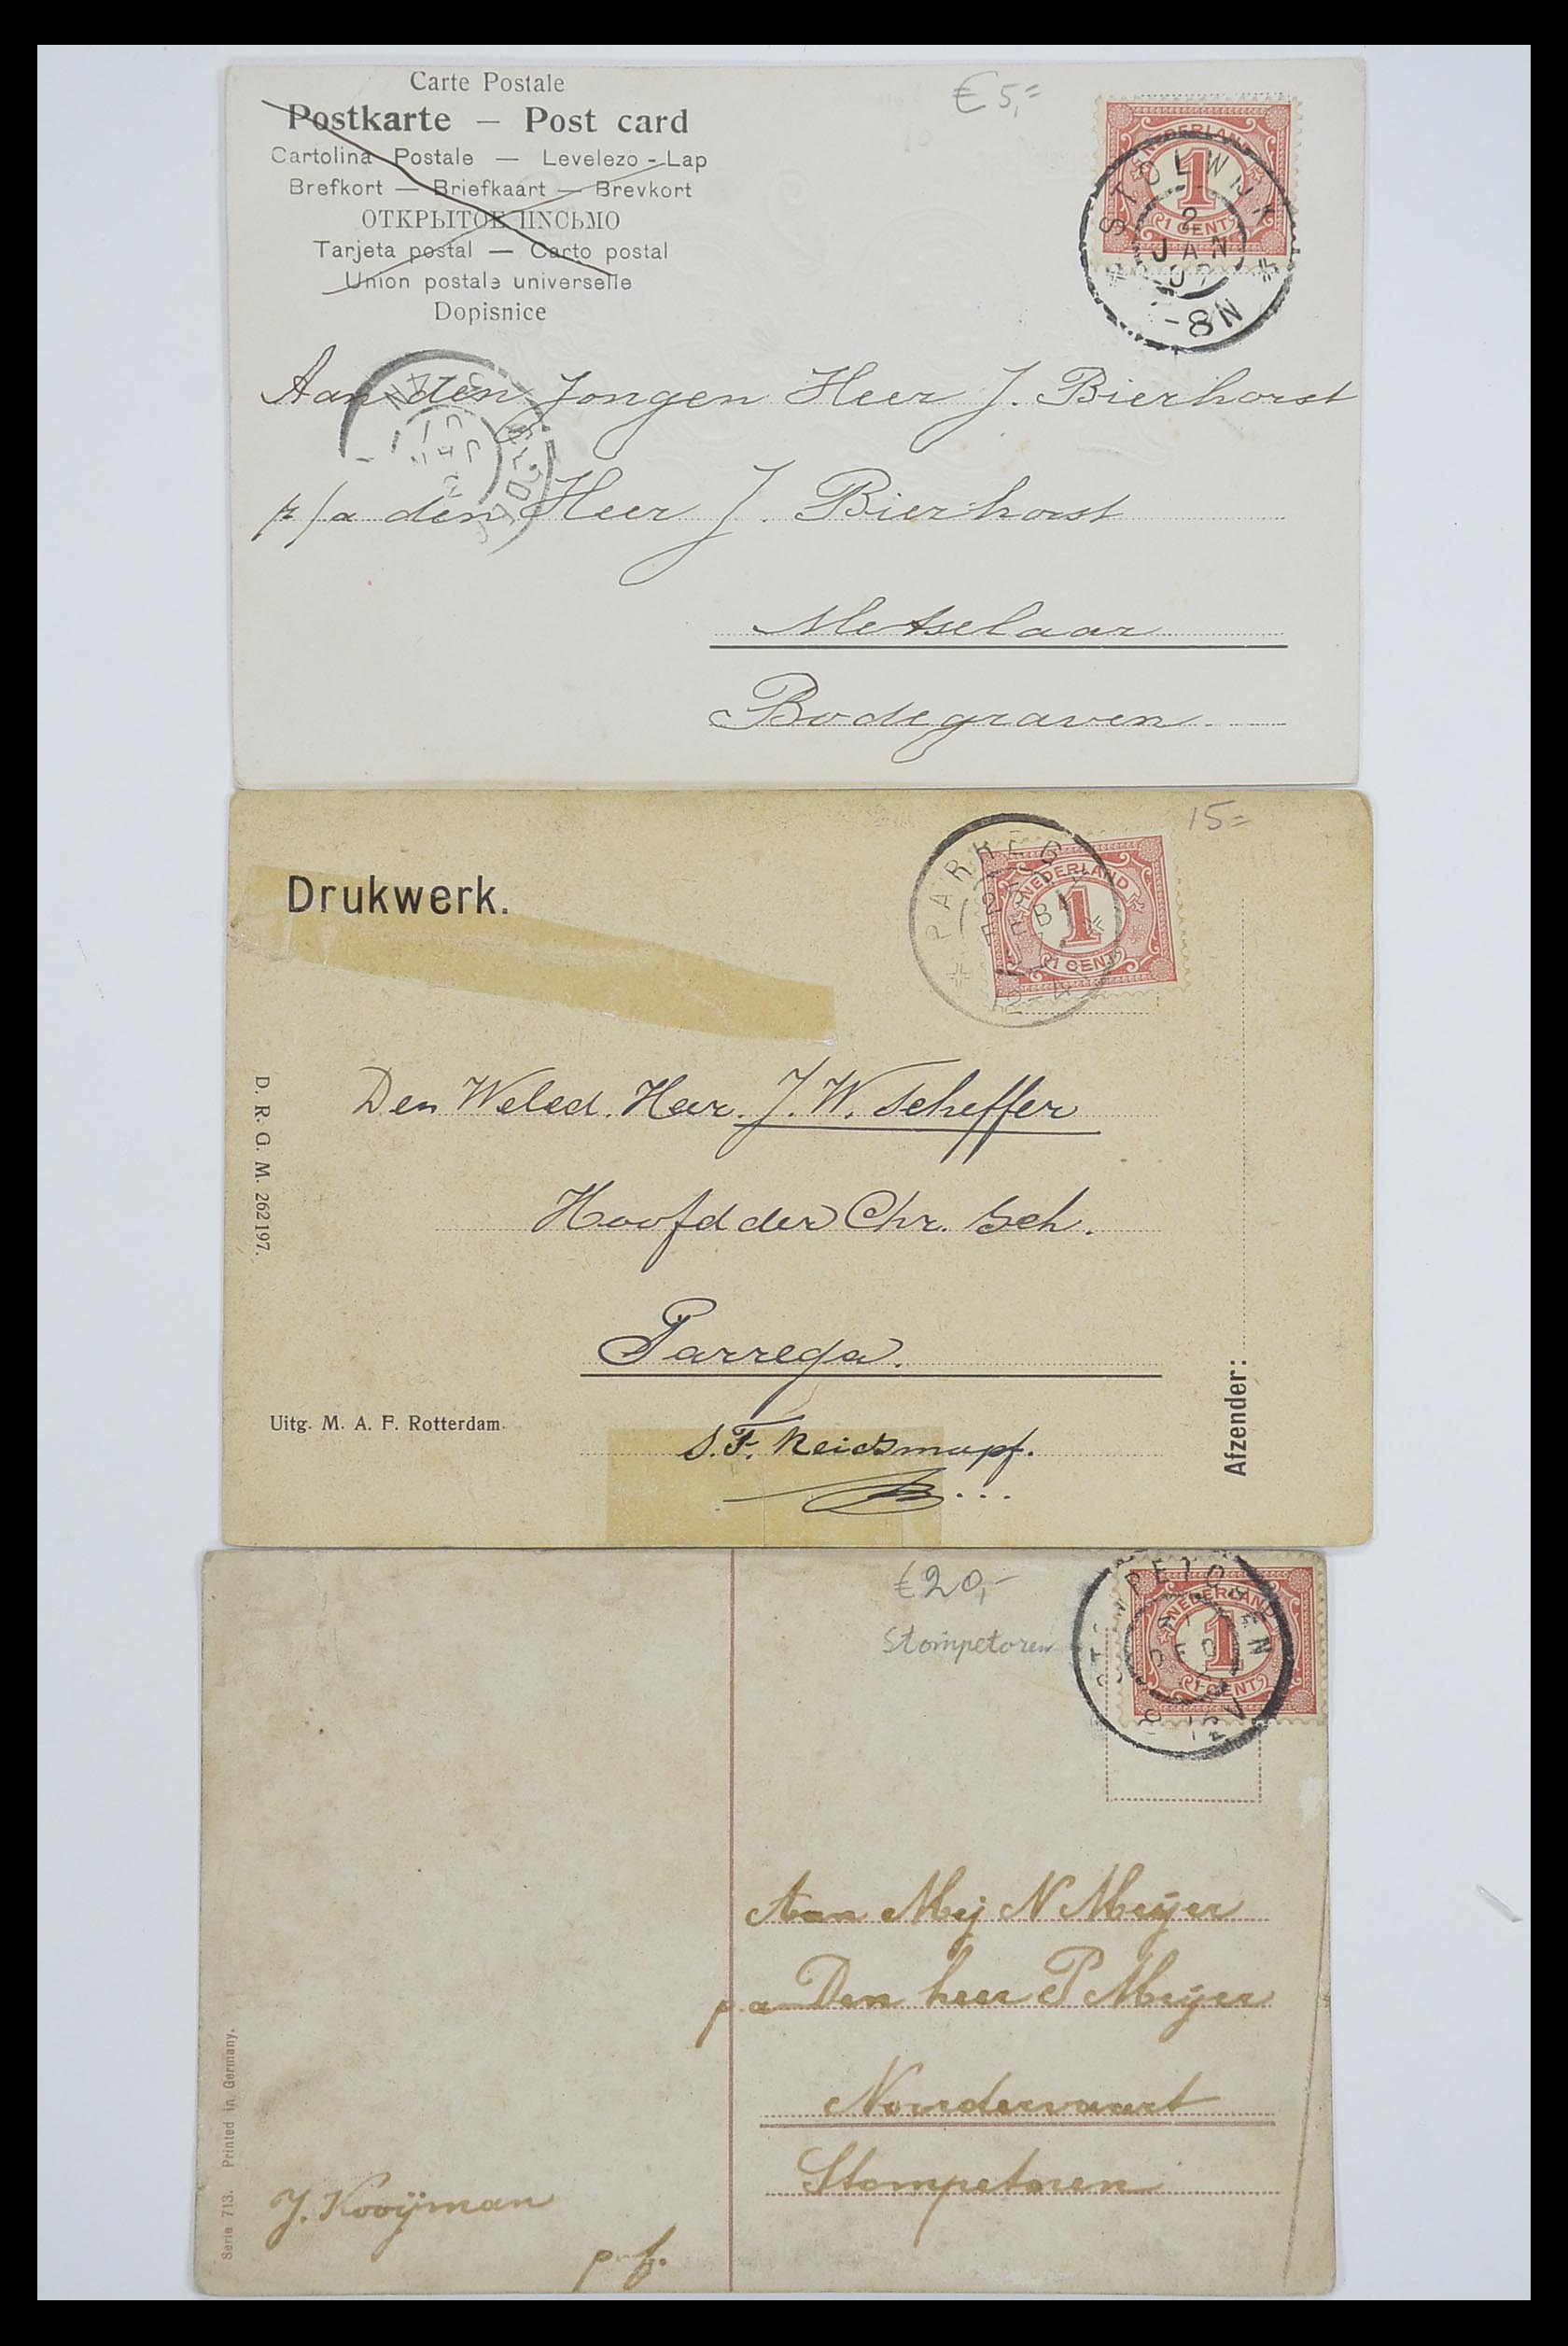 Carte Postale
Postkarte — Post card
Cartolina Postale — Levelezo-Lap
Brefkort — Briefkaart — Brevkort
ОТКРЫТОЕ ПИСЬМО
Tarjeta postal — Carto postal
Union postale universelle
Dopisnice
€ 5,=
NEDERLAND
1
1 CENT
STOLWIJK
2
JAN
07
-8N
Aan den Jongen Heer J. Bierhorst
p/a den Heer J. Bierhorst
Metselaar
Bodegraven
15=
Drukwerk.
NEDERLAND
1
1 CENT
PARREGA
Den Weled. Heer. J. W. Scheffer
Hoofd der Chr. Sch.
Parrega.
D. R. G. M. 262197.
Uitg. M. A. F. Rotterdam.
Afzender:
€ 20,-
Stompetoren
NEDERLAND
1
1 CENT
STOMPETOREN
DEC
Aan Mej N Meijer
p.a Den heer P Meijer
Noordervaart
Stompetoren
J. Kooijman
p.f.
Serie 713. Printed in Germany.